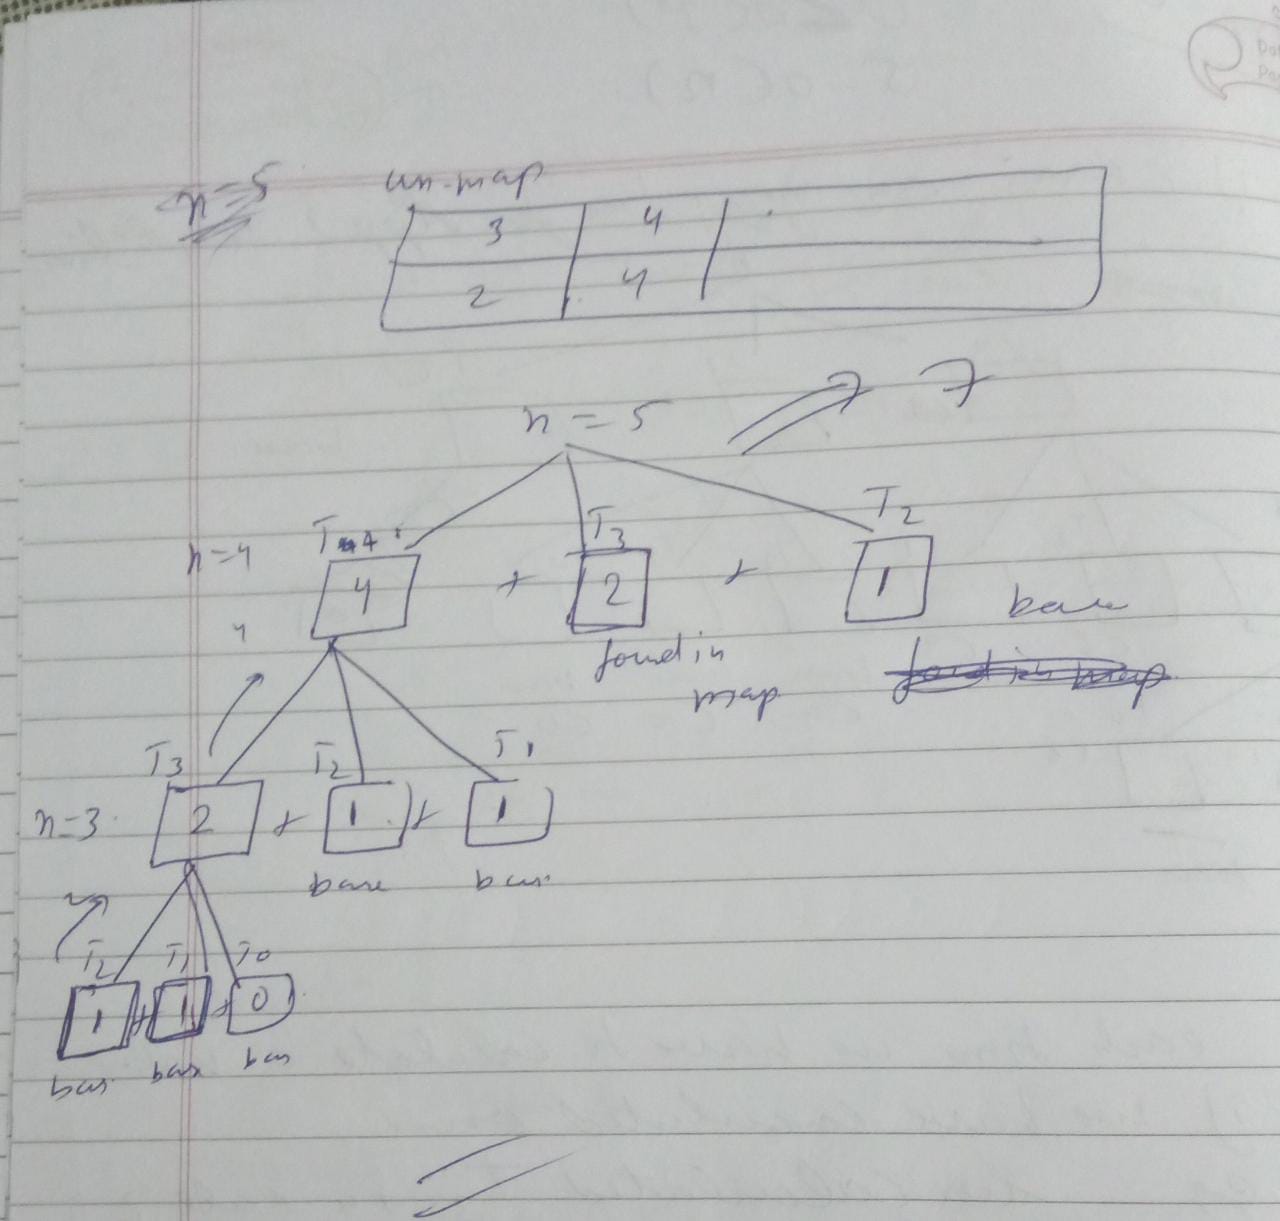 n=5
un-map
3 4
2 4
n = 5 7
T4 T3 T2
n=4 4 + 2 + 1
base
4
found in
map
T3 T2 T1
n=3 2 + 1 + 1
base bas
2
T2 T1 T0
1 + 1 + 0
bas bas bas